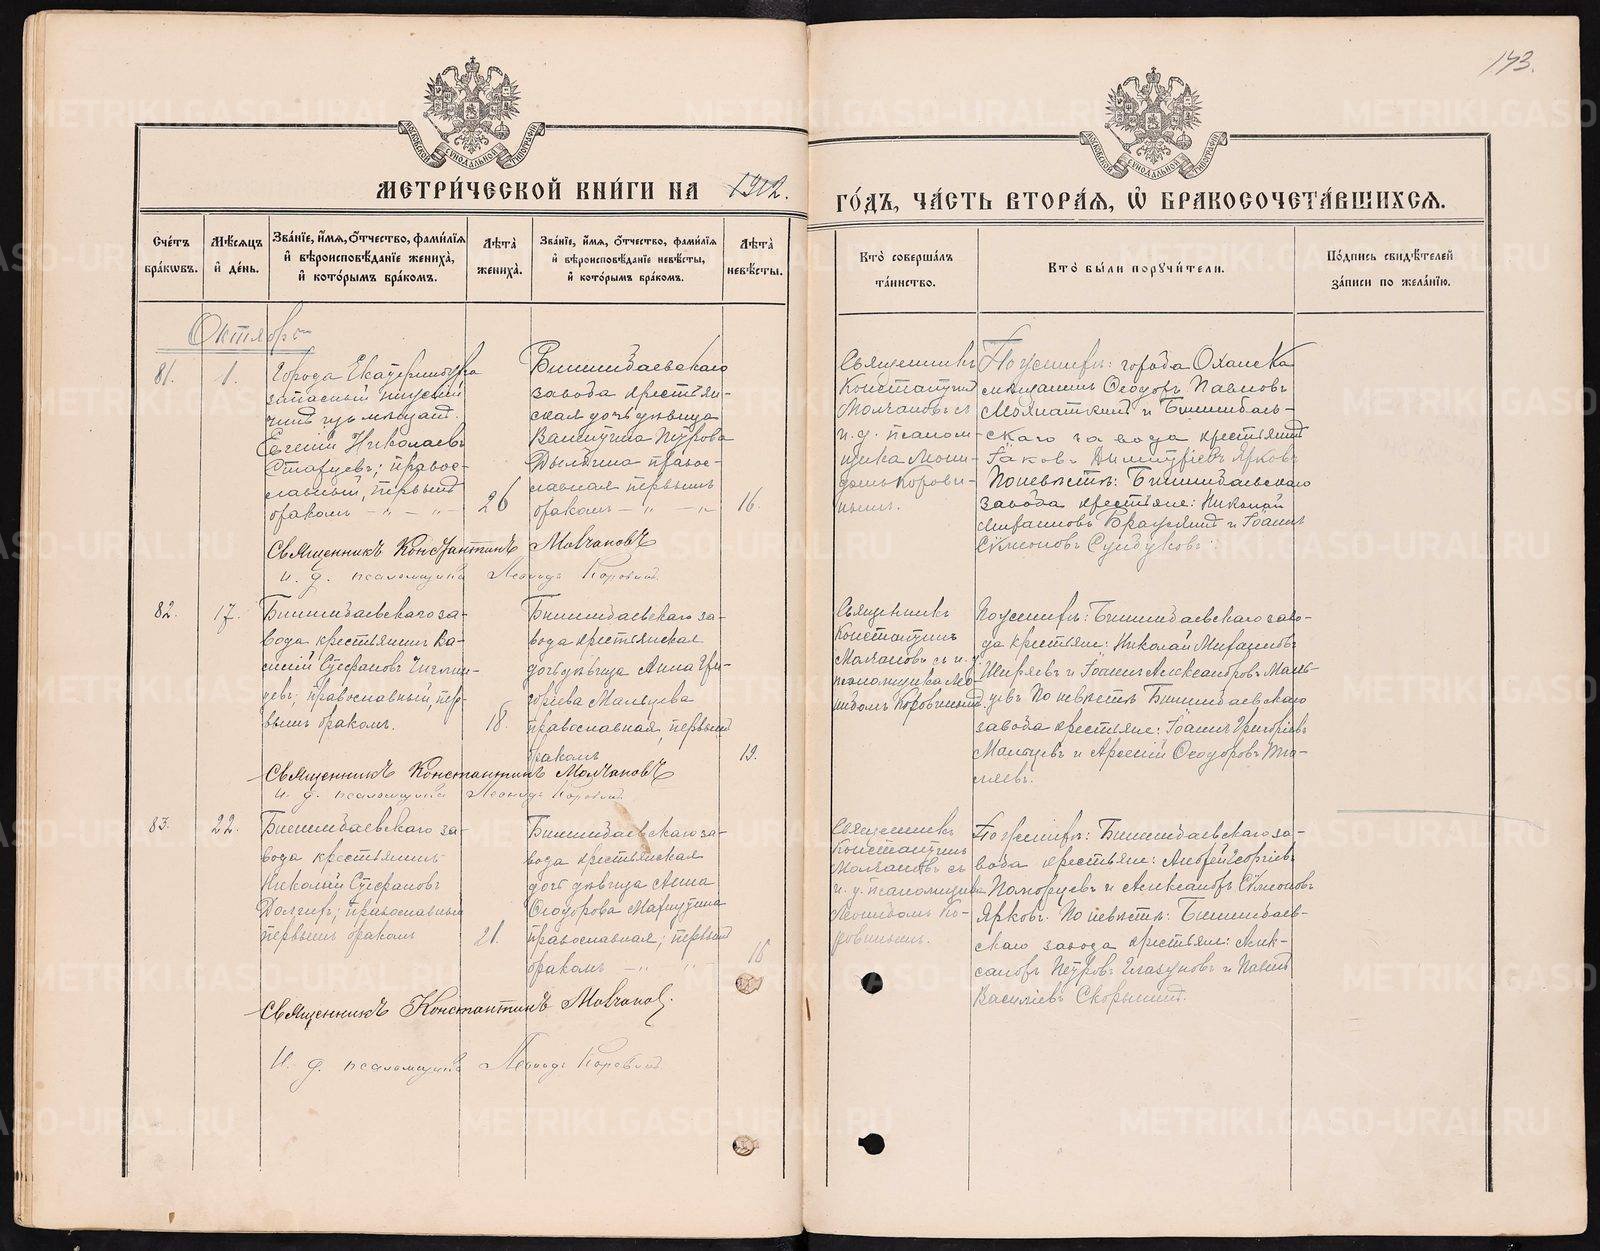 173.
МЕТРИ́ЧЕСКОЙ КНИ́ГИ НА 1912.
ГО́ДЪ, ЧА́СТЬ ВТОРА́Я, Ѽ БРАКОСОЧЕТА́ВШИХСЯ.
МОСКОВСКОЙ СѴНОДАЛЬНОЙ ТИПОГРАФІИ
МОСКОВСКОЙ СѴНОДАЛЬНОЙ ТИПОГРАФІИ
Сче́тъ бра́кѡвъ.
Мѣ́сяцъ и҆ де́нь.
Зва́нїе, и҆́мя, ѻ҆́тчество, фами́лїя и҆ вѣроисповѣ́данїе жениха̀, и҆ кото́рымъ бра́комъ.
Лѣта̀ жениха̀.
Зва́нїе, и҆́мя, ѻ҆́тчество, фами́лїя и҆ вѣроисповѣ́данїе невѣ́сты, и҆ кото́рымъ бра́комъ.
Лѣта̀ невѣ́сты.
Кто̀ соверша́лъ та́инство.
Кто̀ бы́ли порꙋчи́тели.
По́дпись свидѣ́телей за́писи по жела́нїю.
Октябрь
81.
1.
Города Екатеринбурга
запасный
Евгеній Николаевъ
Старцевъ; правос-
лавный, первымъ
бракомъ — „ — „ —
26
Билимбаевскаго
завода крестьян-
ская дочь дѣвица
Валентина Петрова
Дылдина правос-
лавная первымъ
бракомъ — „ — „
16.
Священникъ
Константинъ
Молчановъ съ
и. д. псалом-
щика Леони-
домъ Корови-
нымъ.
По женихѣ: города Оханска
мѣщанинъ Ѳеодоръ Павловъ
и Билимбаев-
скаго завода крестьянинъ
Іаковъ Димитріевъ Ярковъ
По невѣстѣ: Билимбаевскаго
завода крестьяне: Николай
и Іоаннъ
Сѵмеоновъ Сундуковъ.
Священникъ Константинъ Молчановъ
И. д. псаломщика Леонидъ Коровинъ
82.
17.
Билимбаевскаго за-
вода крестьянинъ Ва-
силій Стефановъ
православный, пер-
вымъ бракомъ.
18.
Билимбаевскаго за-
вода крестьянская
дочь дѣвица Анна Гри-
горіева Мальцева
православная, первымъ
бракомъ
19.
Священникъ
Константинъ
Молчановъ съ и. д.
псаломщика Лео-
нидомъ Коровинымъ
По женихѣ: Билимбаевскаго заво-
да крестьяне: Николай
Ширяевъ и Іоаннъ Александровъ Маль-
цевъ По невѣстѣ Билимбаевскаго
завода крестьяне: Іоаннъ Григоріевъ
Мальцевъ и Арсеній Ѳеодоровъ
Священникъ Константинъ Молчановъ
И. д. псаломщика Леонидъ Коровинъ
83.
22.
Билимбаевскаго за-
вода крестьянинъ
Николай Стефановъ
Долгихъ; православный
первымъ бракомъ
21.
Билимбаевскаго за-
вода крестьянская
дочь дѣвица Анна
Ѳеодорова
православная; первымъ
бракомъ — „ „
18
Священникъ
Константинъ
Молчановъ съ
и. д. псаломщика
Леонидомъ Ко-
ровинымъ.
По женихѣ: Билимбаевскаго за-
вода крестьяне: Андрей Георгіевъ
Поморцевъ и Александръ Сѵмеоновъ
Ярковъ. По невѣстѣ: Билимбаев-
скаго завода крестьяне: Алек-
сандръ Петровъ Глазуновъ и Павелъ
Василіевъ Скорынинъ.
Священникъ Константинъ Молчановъ.
И. д. псаломщика Леонидъ Коровинъ
METRIKI.GASO-URAL.RU